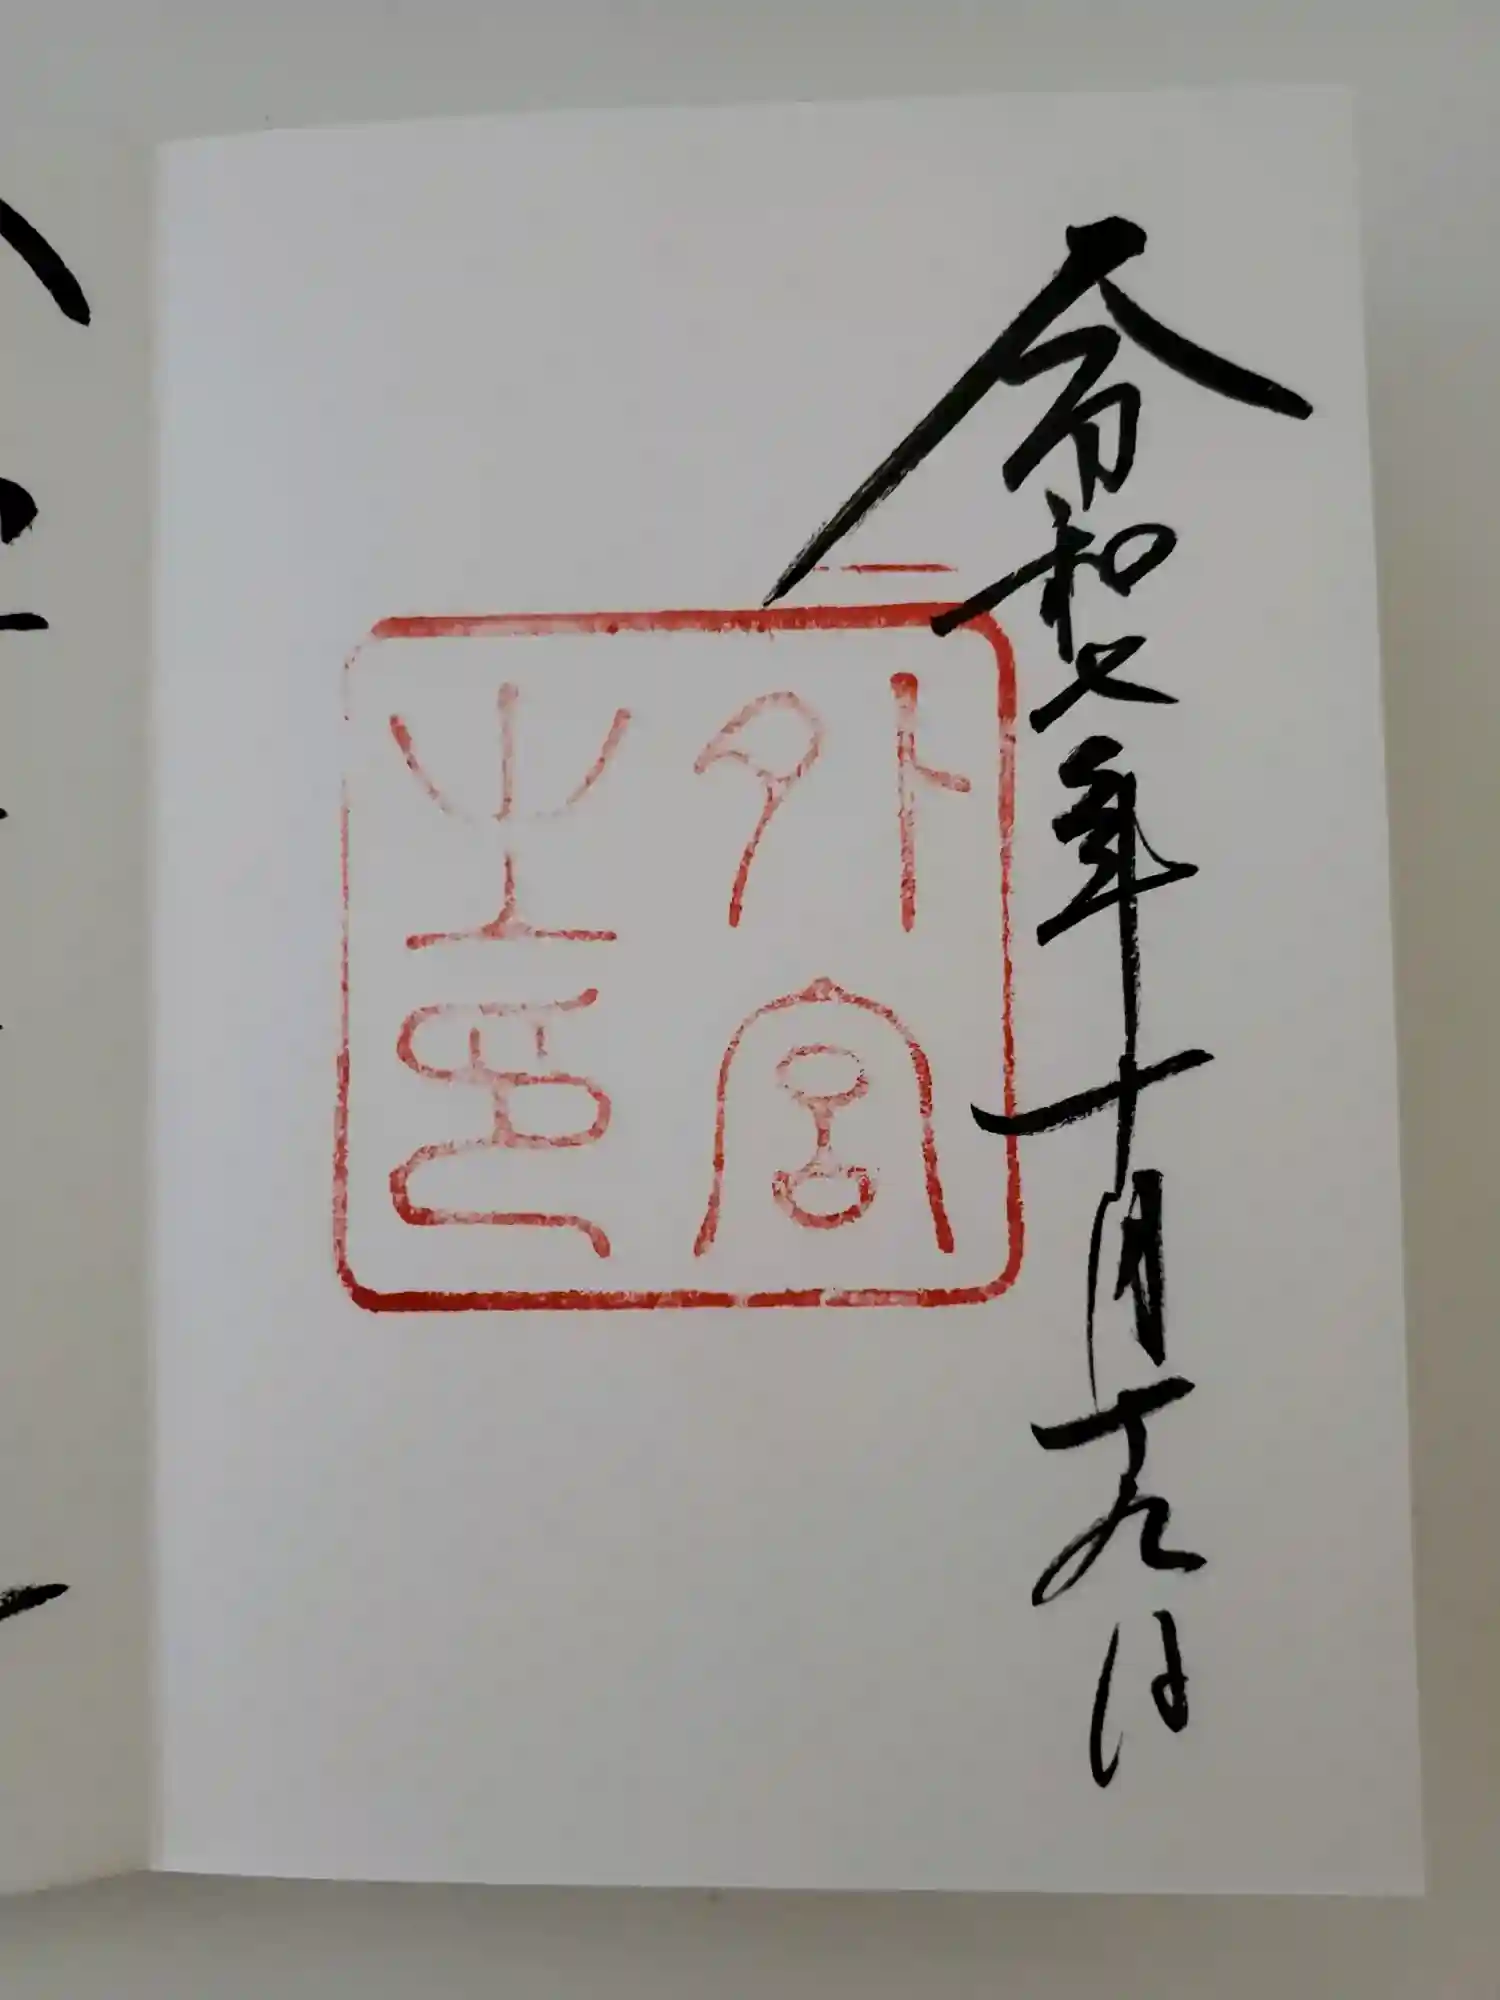 令和七年十月十九日
外宮
之印